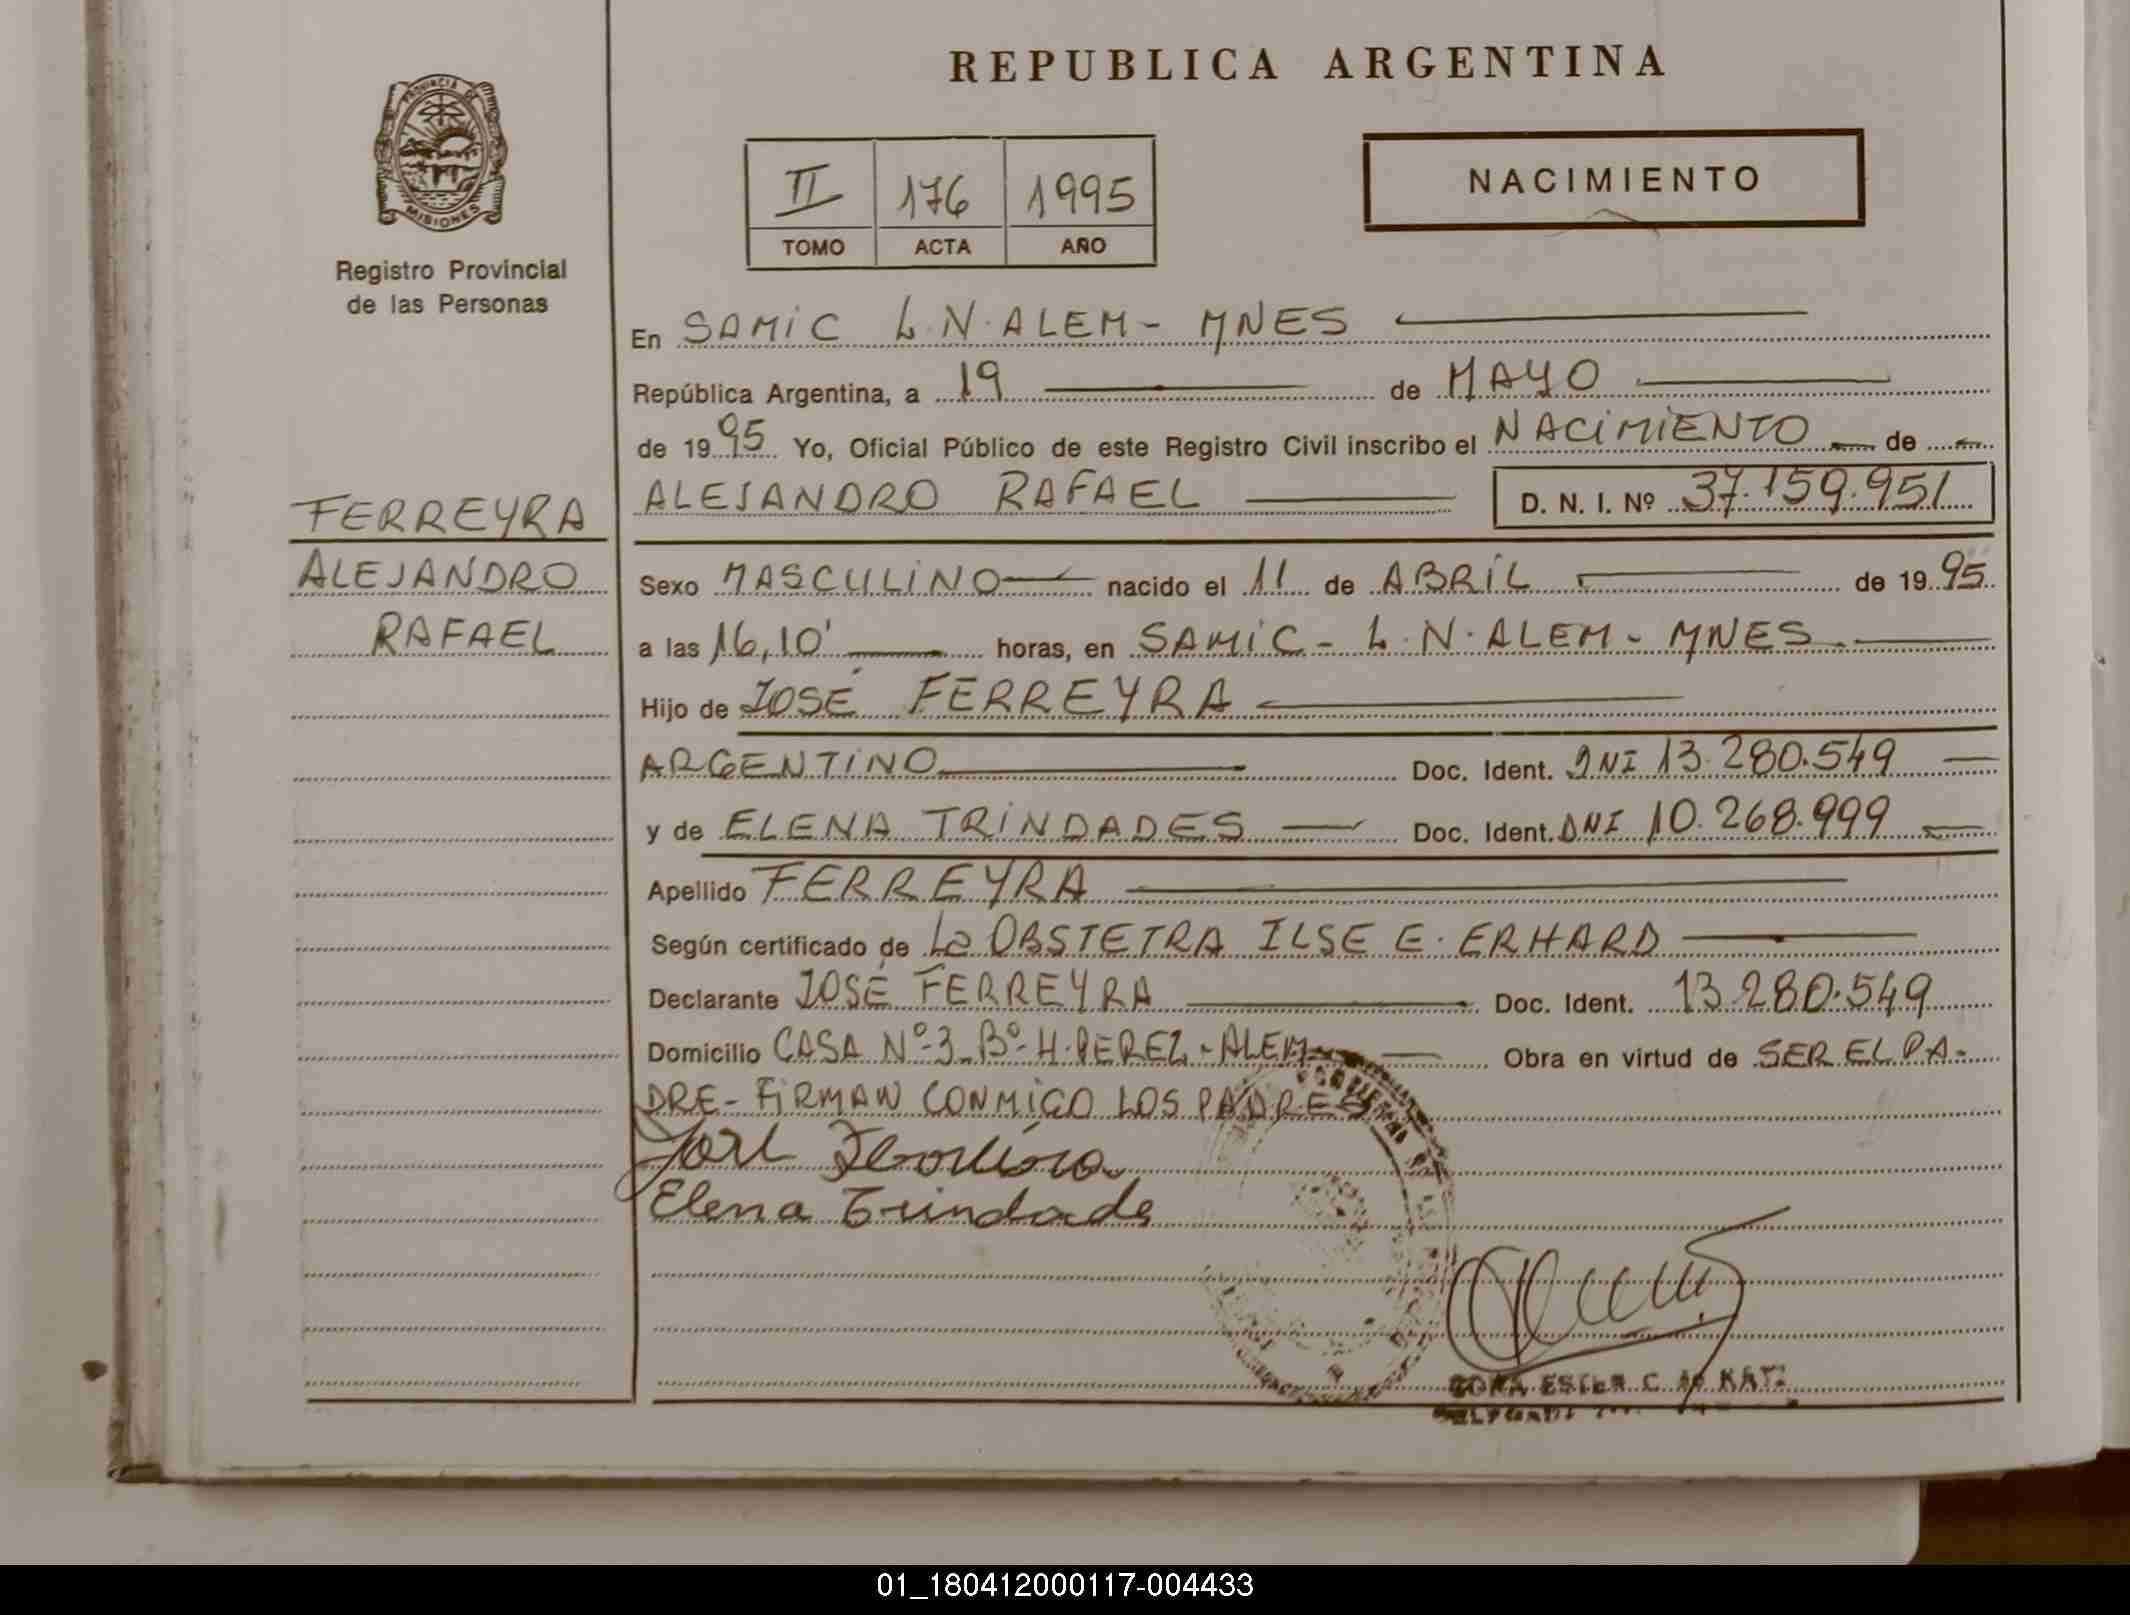 REPUBLICA ARGENTINA
PROVINCIA DE
MISIONES
Registro Provincial
de las Personas
II 176 1995
TOMO ACTA AÑO
NACIMIENTO
En SAMIC L.N. ALEM - MNES
República Argentina, a 19 de MAYO
de 1995 Yo, Oficial Público de este Registro Civil inscribo el NACIMIENTO de
ALEJANDRO RAFAEL D. N. I. Nº 37.159.951
FERREYRA
ALEJANDRO
RAFAEL
Sexo MASCULINO nacido el 11 de ABRIL de 1995
a las 16,10' horas, en SAMIC - L.N. ALEM - MNES
Hijo de JOSÉ FERREYRA
ARGENTINO Doc. Ident. DNI 13.280.549
y de ELENA TRINDADES Doc. Ident. DNI 10.268.999
Apellido FERREYRA
Según certificado de La OBSTETRA ILSE E. ERHARD
Declarante JOSÉ FERREYRA Doc. Ident. 13.280.549
Domicilio CASA Nº 3 Bº H. PEREZ - ALEM Obra en virtud de SER EL PA-
DRE - FIRMAN CONMIGO LOS PADRES
Elena Trindade
01_180412000117-004433